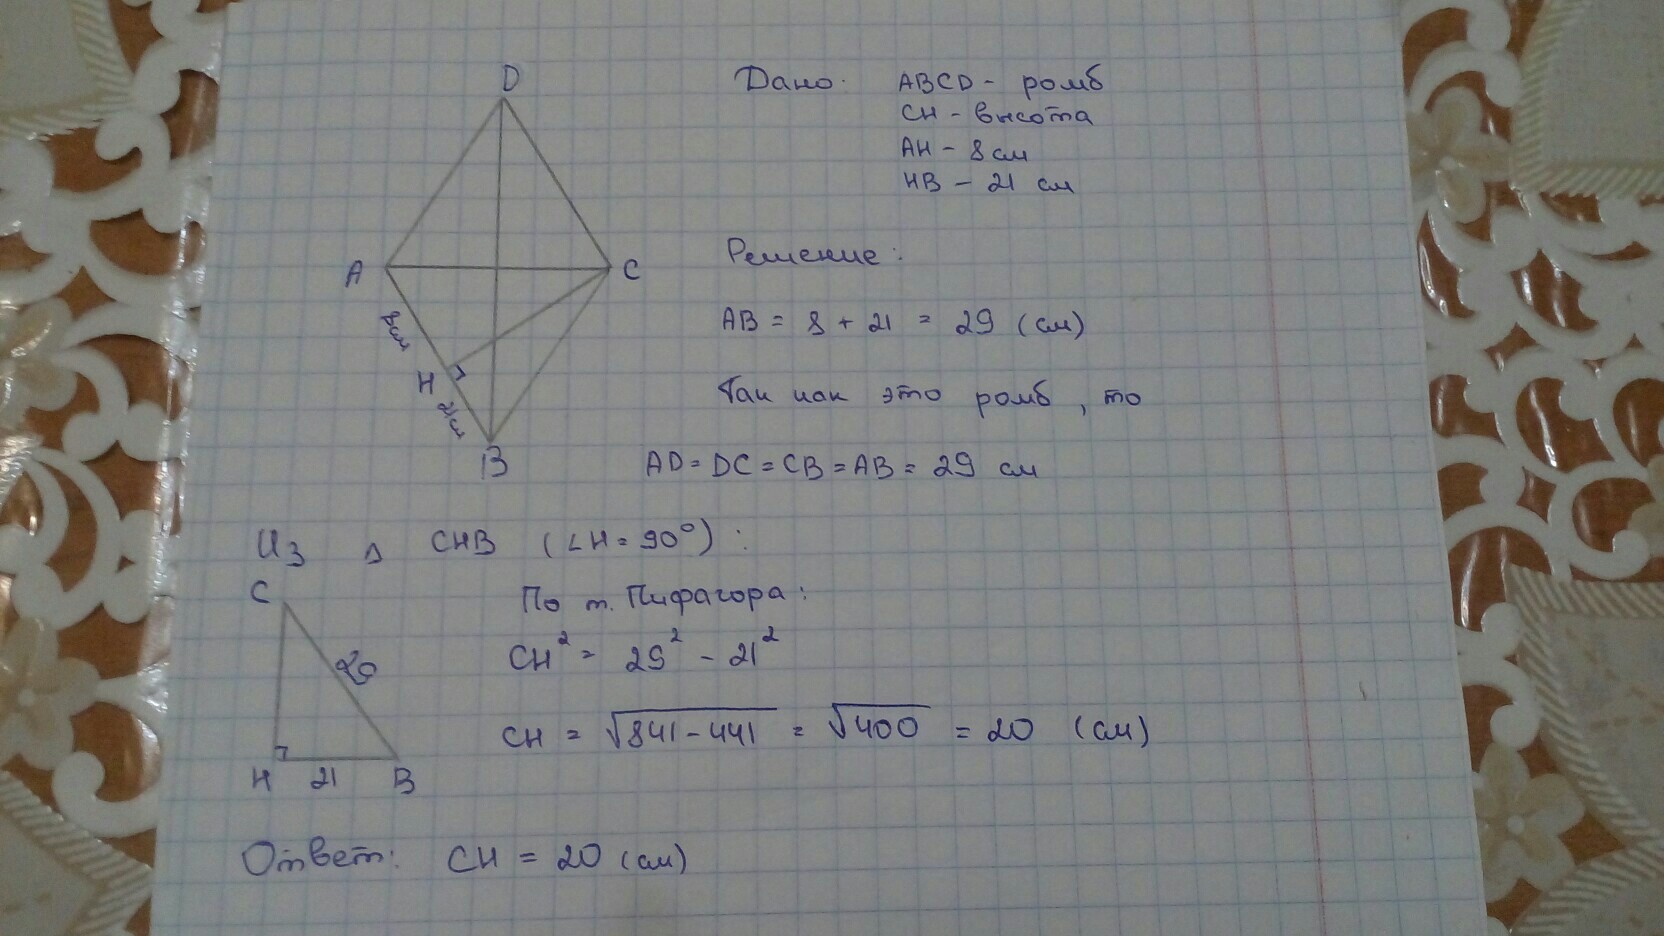 D
Дано: ABCD - ромб
CH - высота
AH - 8 см
HB - 21 см
A
C
8 см
H
21 см
B
Решение:
AB = 8 + 21 = 29 (см)
Так как это ромб, то
AD = DC = CB = AB = 29 см
Из △ CHB (∠H = 90°):
C
29
H
21
B
По т. Пифагора:
CH² = 29² - 21²
CH = √841 - 441 = √400 = 20 (см)
Ответ: CH = 20 (см)